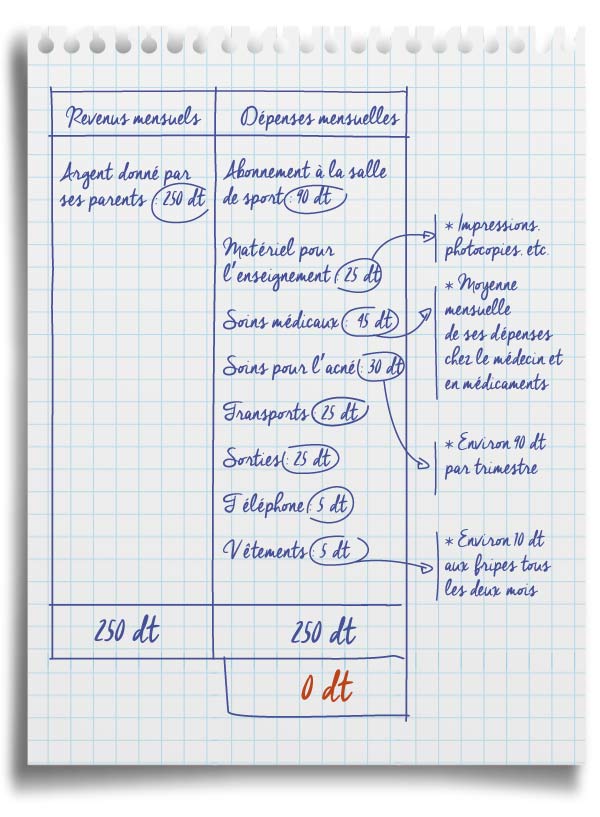 Revenus mensuels
Argent donné par
ses parents : 250 dt
250 dt
Dépenses mensuelles
Abonnement à la salle
de sport : 90 dt
Matériel pour
l'enseignement : 25 dt
Soins médicaux : 45 dt
Soins pour l'acné : 30 dt
Transports : 25 dt
Sorties : 25 dt
Téléphone : 5 dt
Vêtements : 5 dt
250 dt
0 dt
* Impressions,
photocopies, etc.
* Moyenne
mensuelle
de ses dépenses
chez le médecin et
en médicaments
* Environ 90 dt
par trimestre
* Environ 10 dt
aux fripes tous
les deux mois